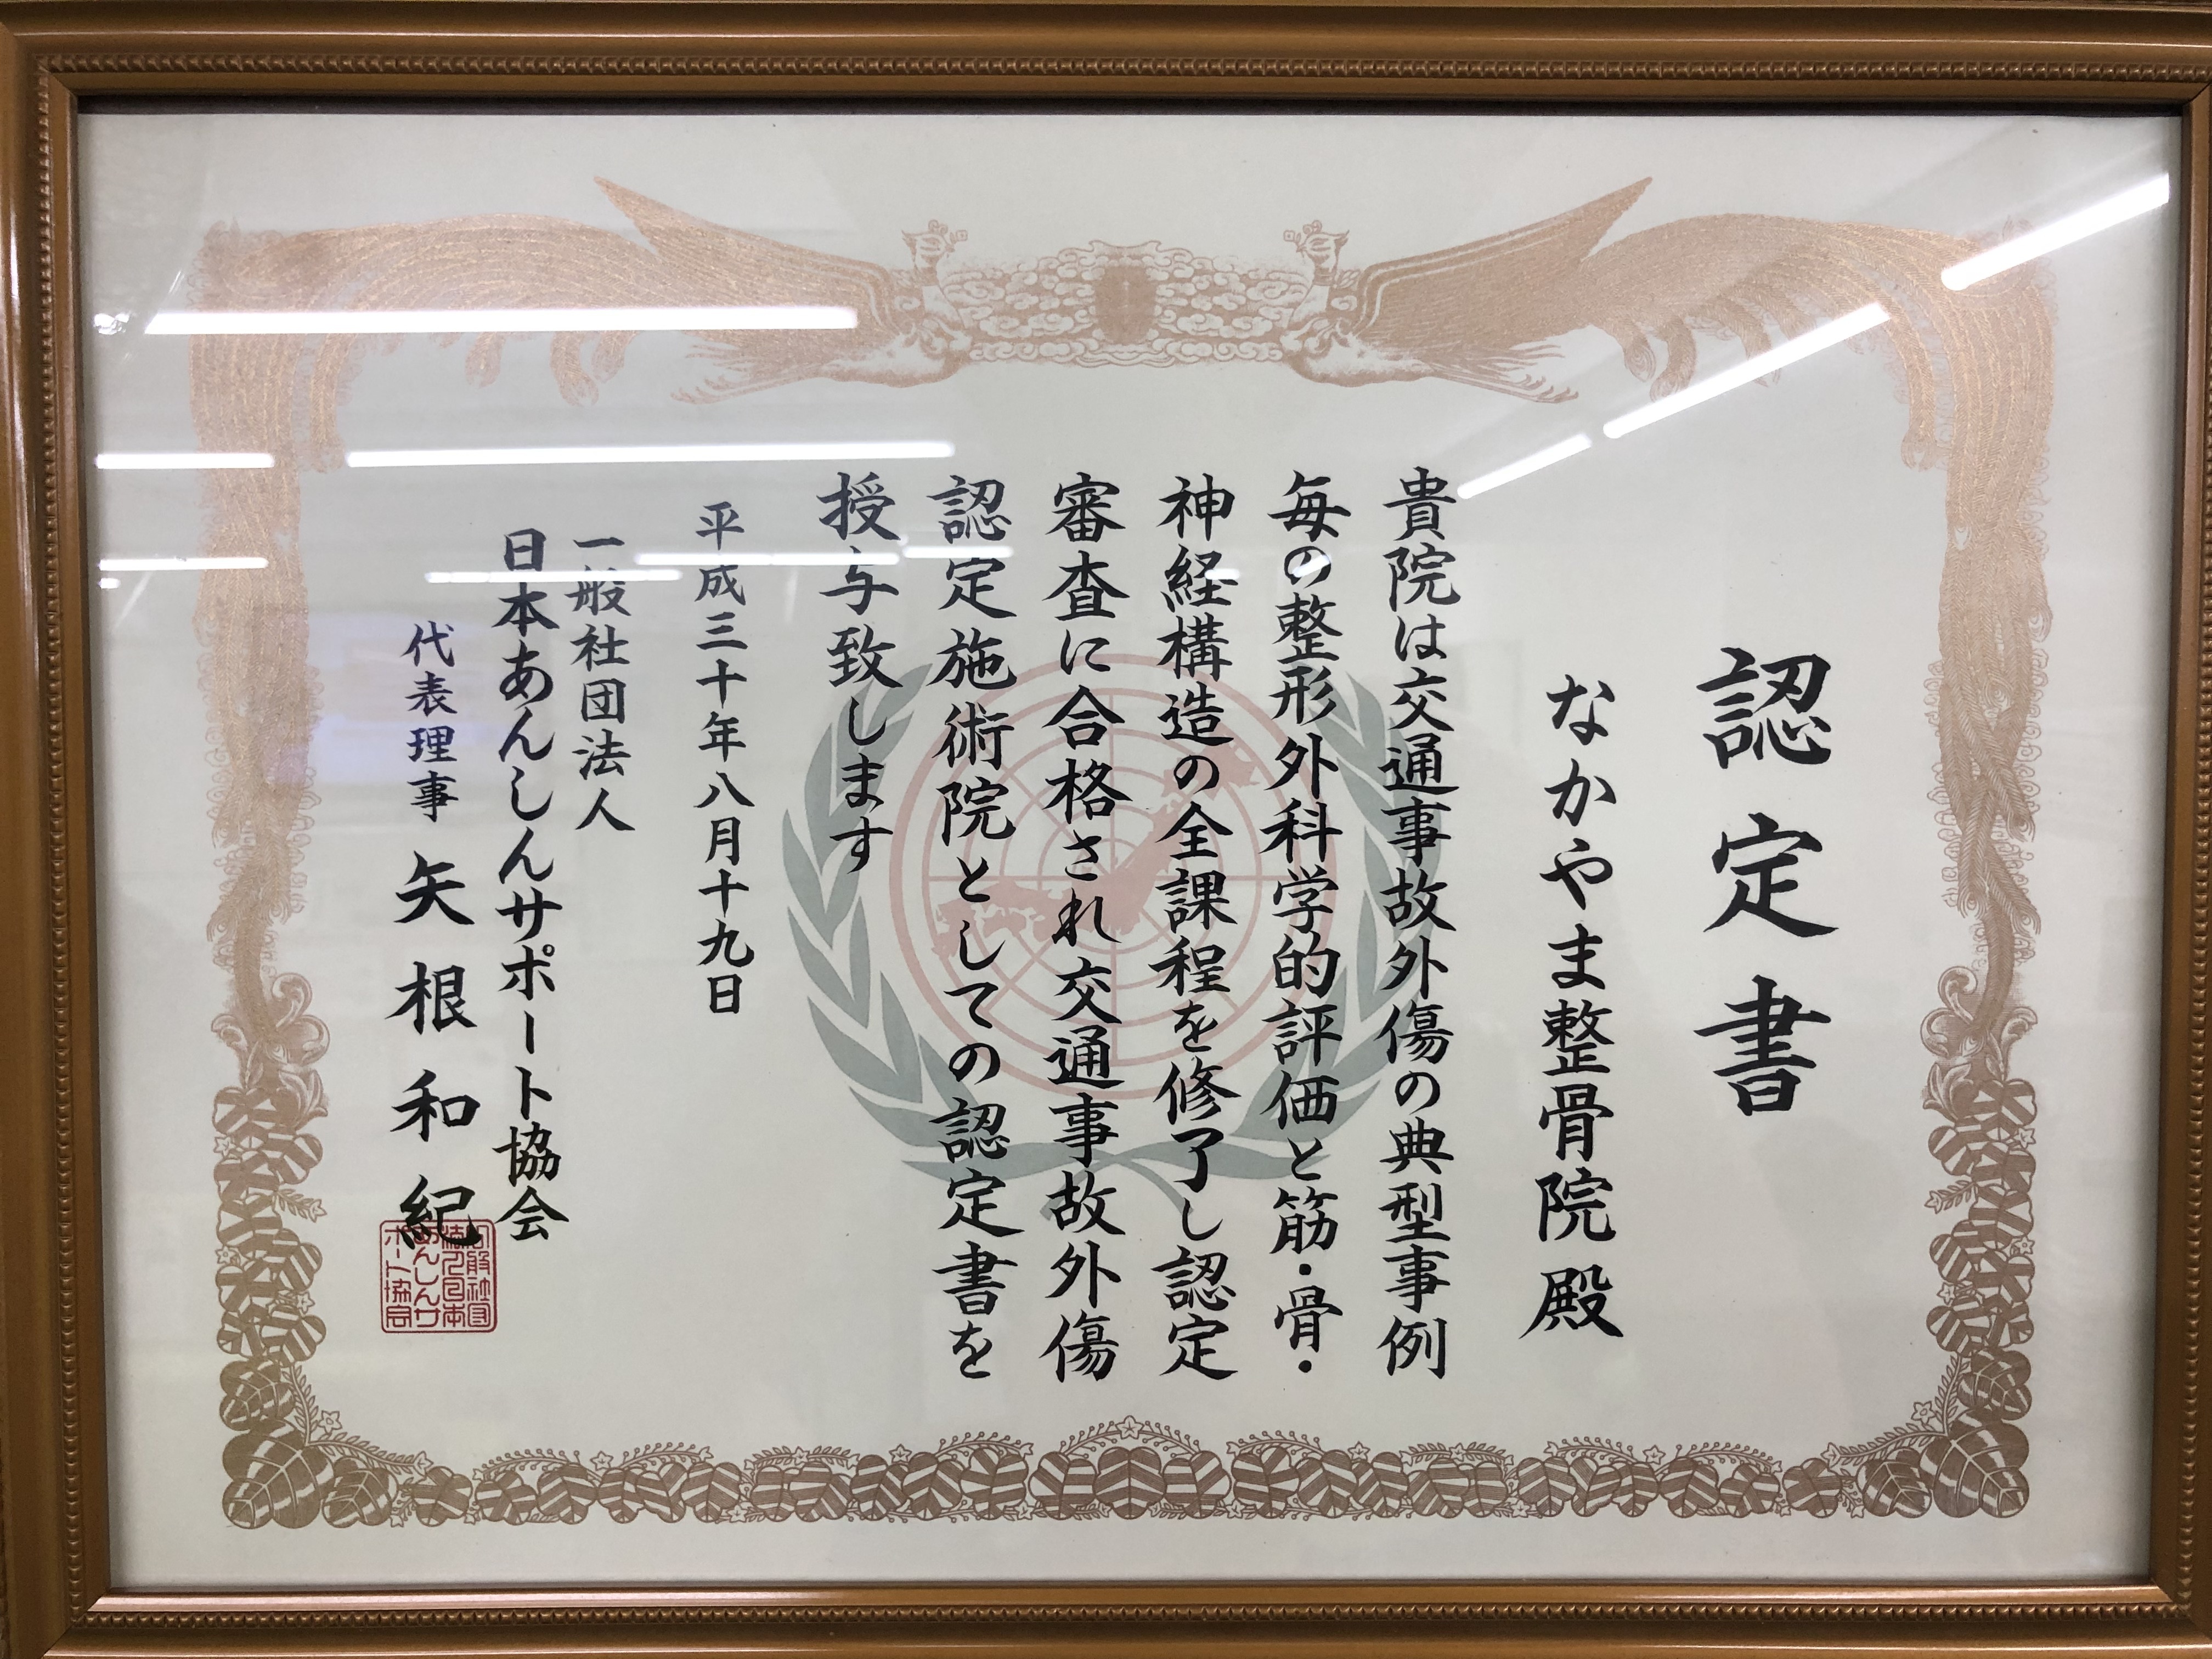 認定書
なかやま整骨院 殿
貴院は交通事故外傷の典型事例
毎の整形外科学的評価と筋・骨・
神経構造の全課程を修了し認定
審査に合格され交通事故外傷
認定施術院としての認定書を
授与致します
平成三十年八月十九日
一般社団法人
日本あんしんサポート協会
代表理事 矢根和紀
一般社団
法人日本
あんしんサ
ポート協会